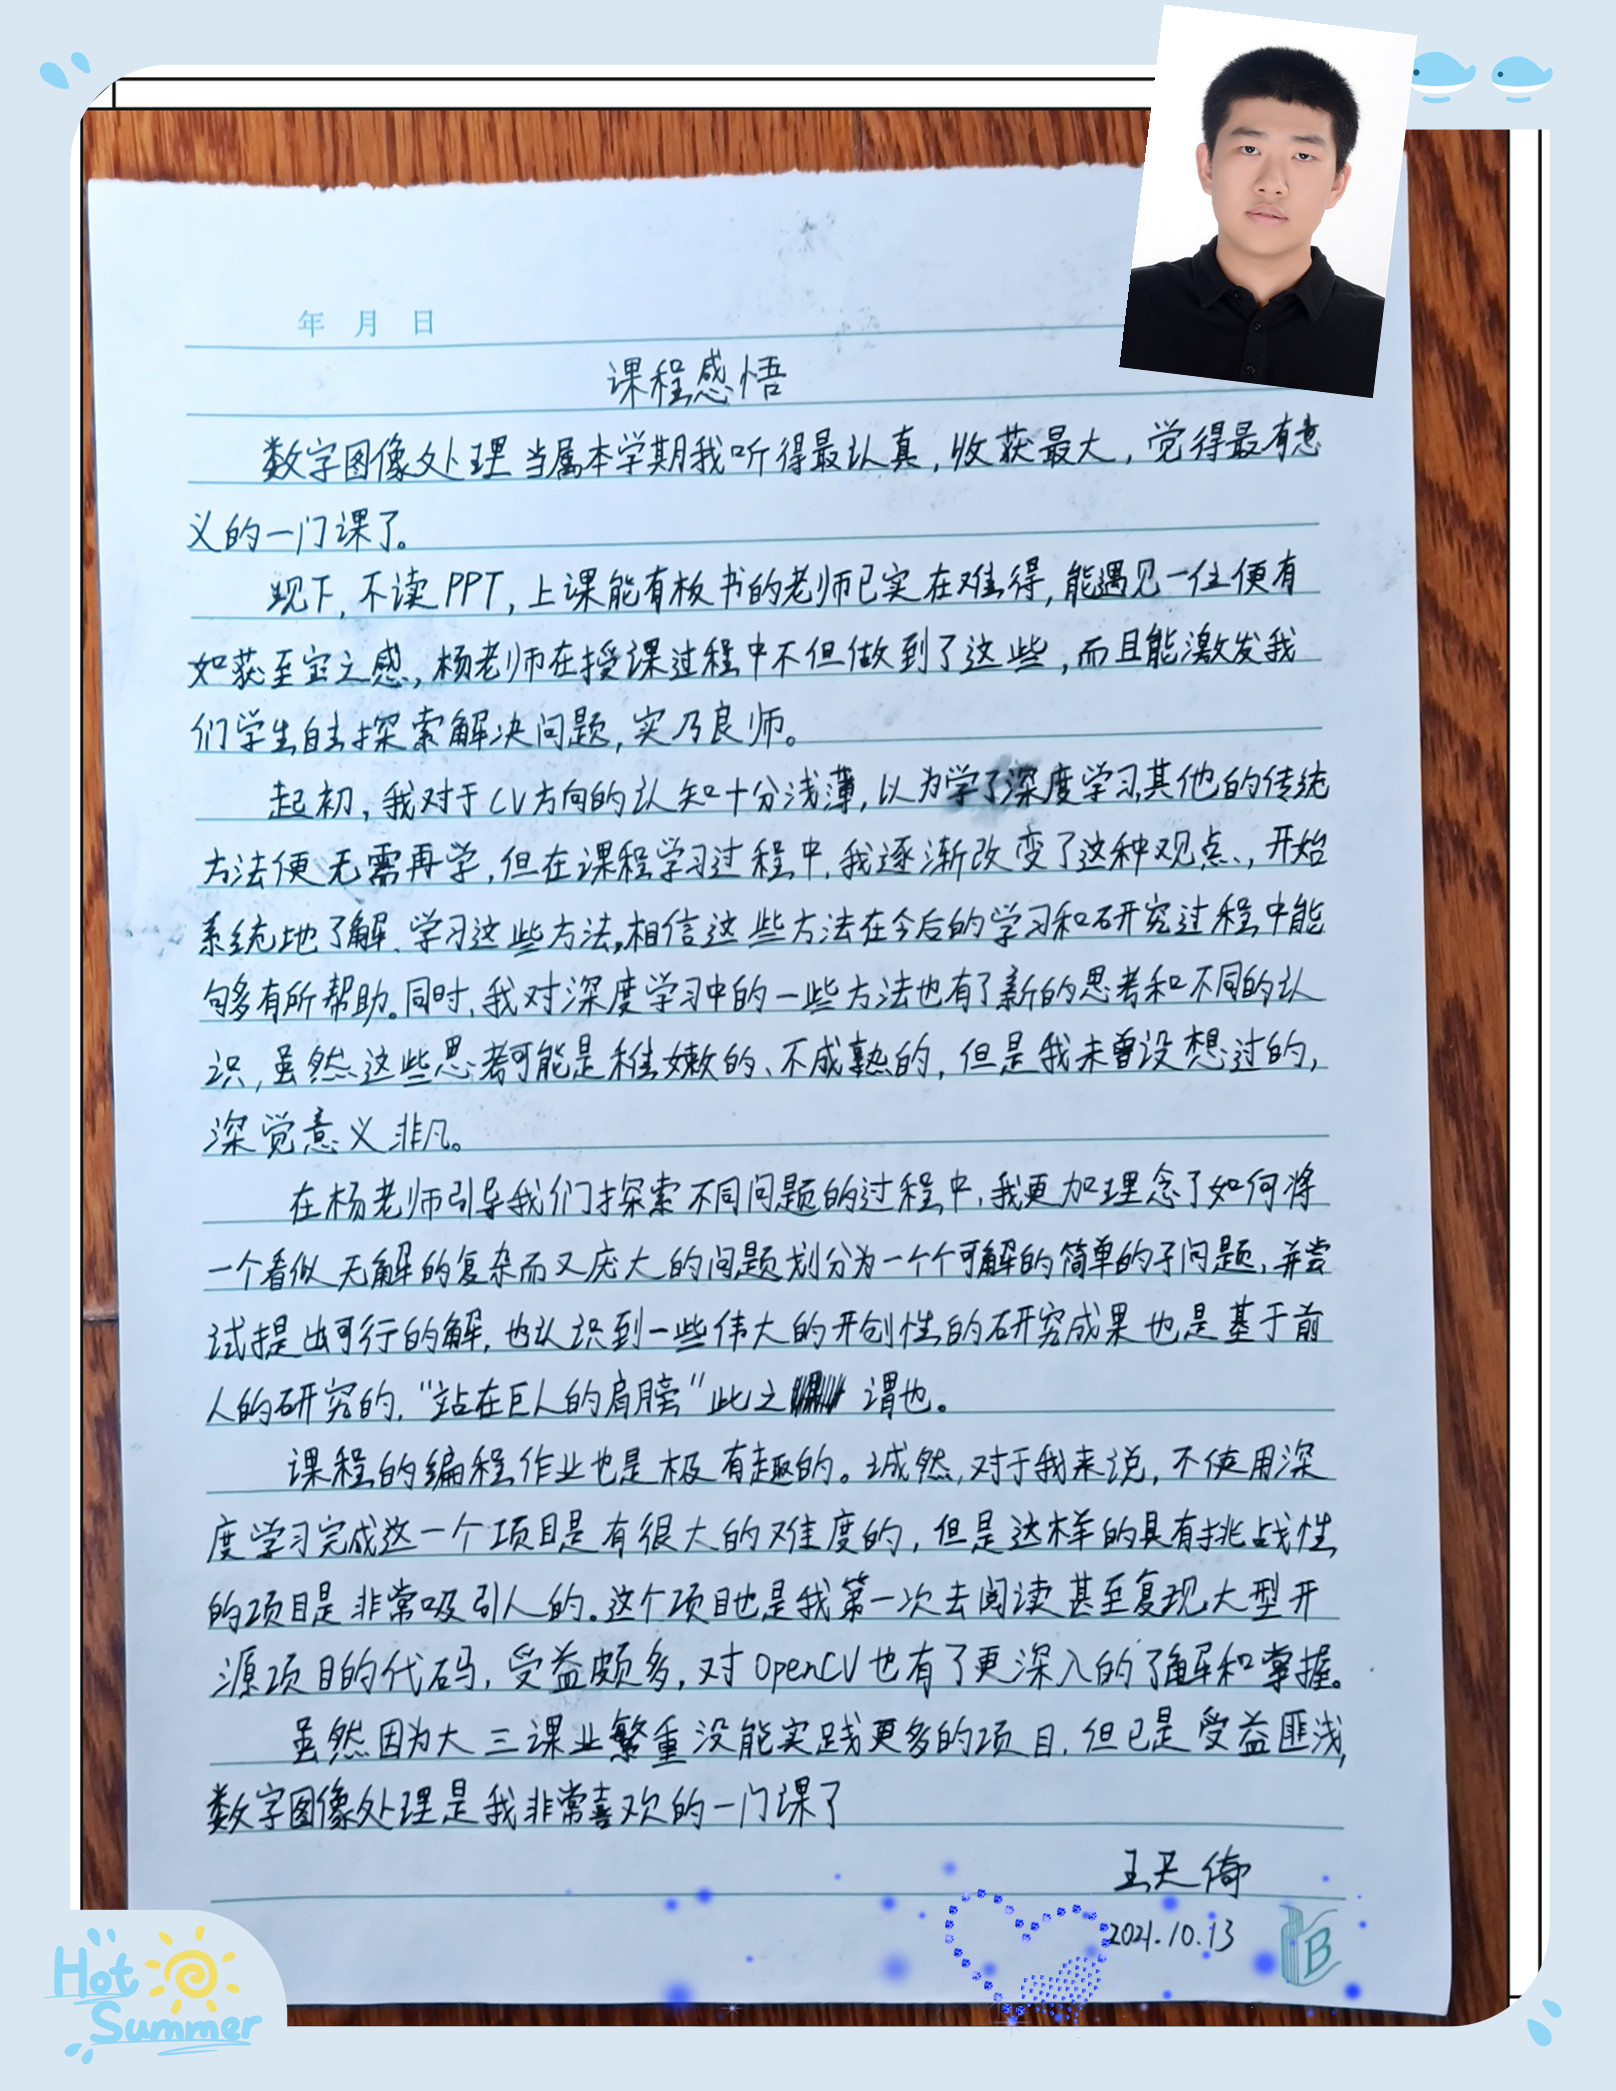 年 月 日
课程感悟
数字图像处理当属本学期我听得最认真,收获最大,觉得最有意
义的一门课了。
现下,不读PPT,上课能有板书的老师已实在难得,能遇见一位便有
如获至宝之感,杨老师在授课过程中不但做到了这些,而且能激发我
们学生自主探索解决问题,实乃良师。
起初,我对于CV方向的认知十分浅薄,以为学了深度学习,其他的传统
方法便无需再学,但在课程学习过程中,我逐渐改变了这种观点,开始
系统地了解、学习这些方法,相信这些方法在今后的学习和研究过程中能
够多有所帮助。同时,我对深度学习中的一些方法也有了新的思考和不同的认
识,虽然这些思考可能是稚嫩的、不成熟的,但是我未曾设想过的,
深觉意义非凡。
在杨老师引导我们探索不同问题的过程中,我更加理念了如何将
一个看似无解的复杂而又庞大的问题划分为一个个可解的简单的子问题,并尝
试提出可行的解,也认识到一些伟大的开创性的研究成果也是基于前
人的研究的,“站在巨人的肩膀”此之谓也。
课程的编程作业也是极有趣的。诚然,对于我来说,不使用深
度学习完成这一个项目是有很大的难度的,但是这样的具有挑战性
的项目是非常吸引人的。这个项目也是我第一次去阅读甚至复现大型开
源项目的代码,受益颇多,对OpenCV也有了更深入的了解和掌握。
虽然因为大三课业繁重没能实践更多的项目,但已是受益匪浅,
数字图像处理是我非常喜欢的一门课了
王天倚
2021.10.13
B
Hot
Summer